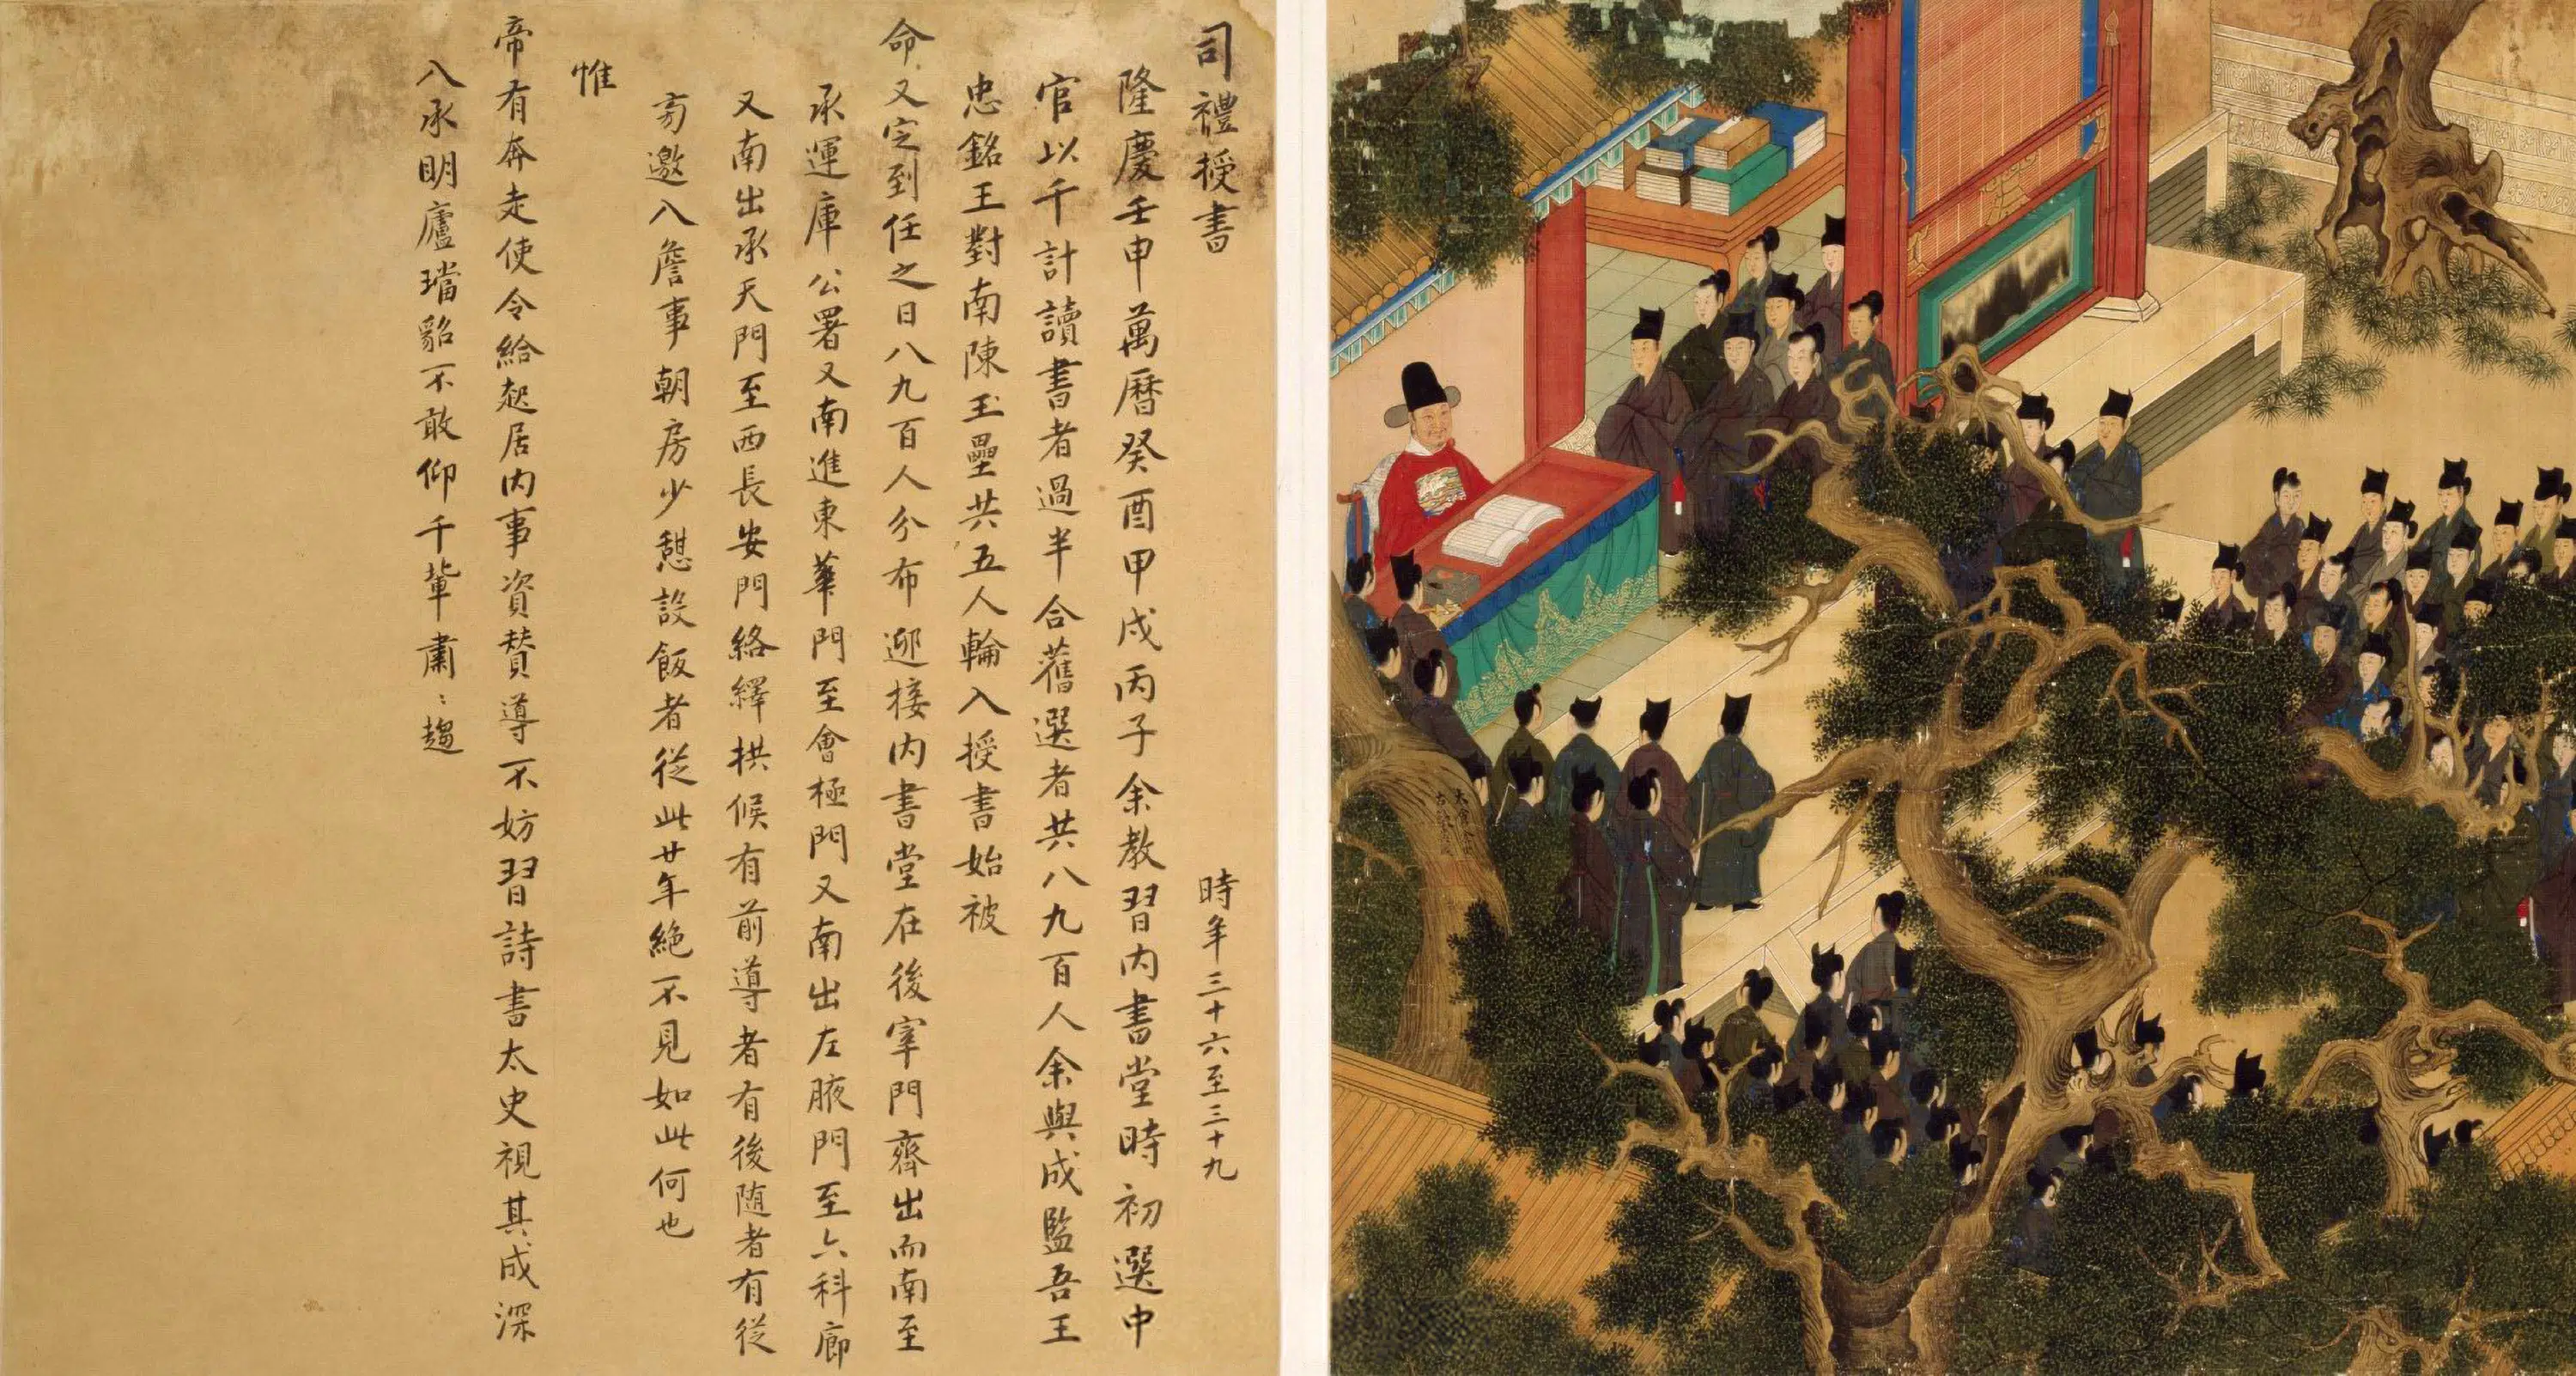 司禮授書
時年三十六至三十九
隆慶壬申萬曆癸酉甲戌丙子余教習内書堂時初選中
官以千計讀書者過半合舊選者共八九百人余與成監吾王
忠銘王對南陳玉壘共五人輪入授書始被
命又定到任之日八九百人分布迎接内書堂在後宰門齊出而南至
承運庫公署又南進東華門至會極門又南出左腋門至六科廊
又南出承天門至西長安門絡繹拱候有前導者有後随者有從
旁邀入詹事朝房少憩設飯者從此廿年絶不見如此何也
惟
帝有奔走使令給起居内事資賛導不妨習詩書太史視其成深
入承明廬璫貂不敢仰千輩肅〻趨